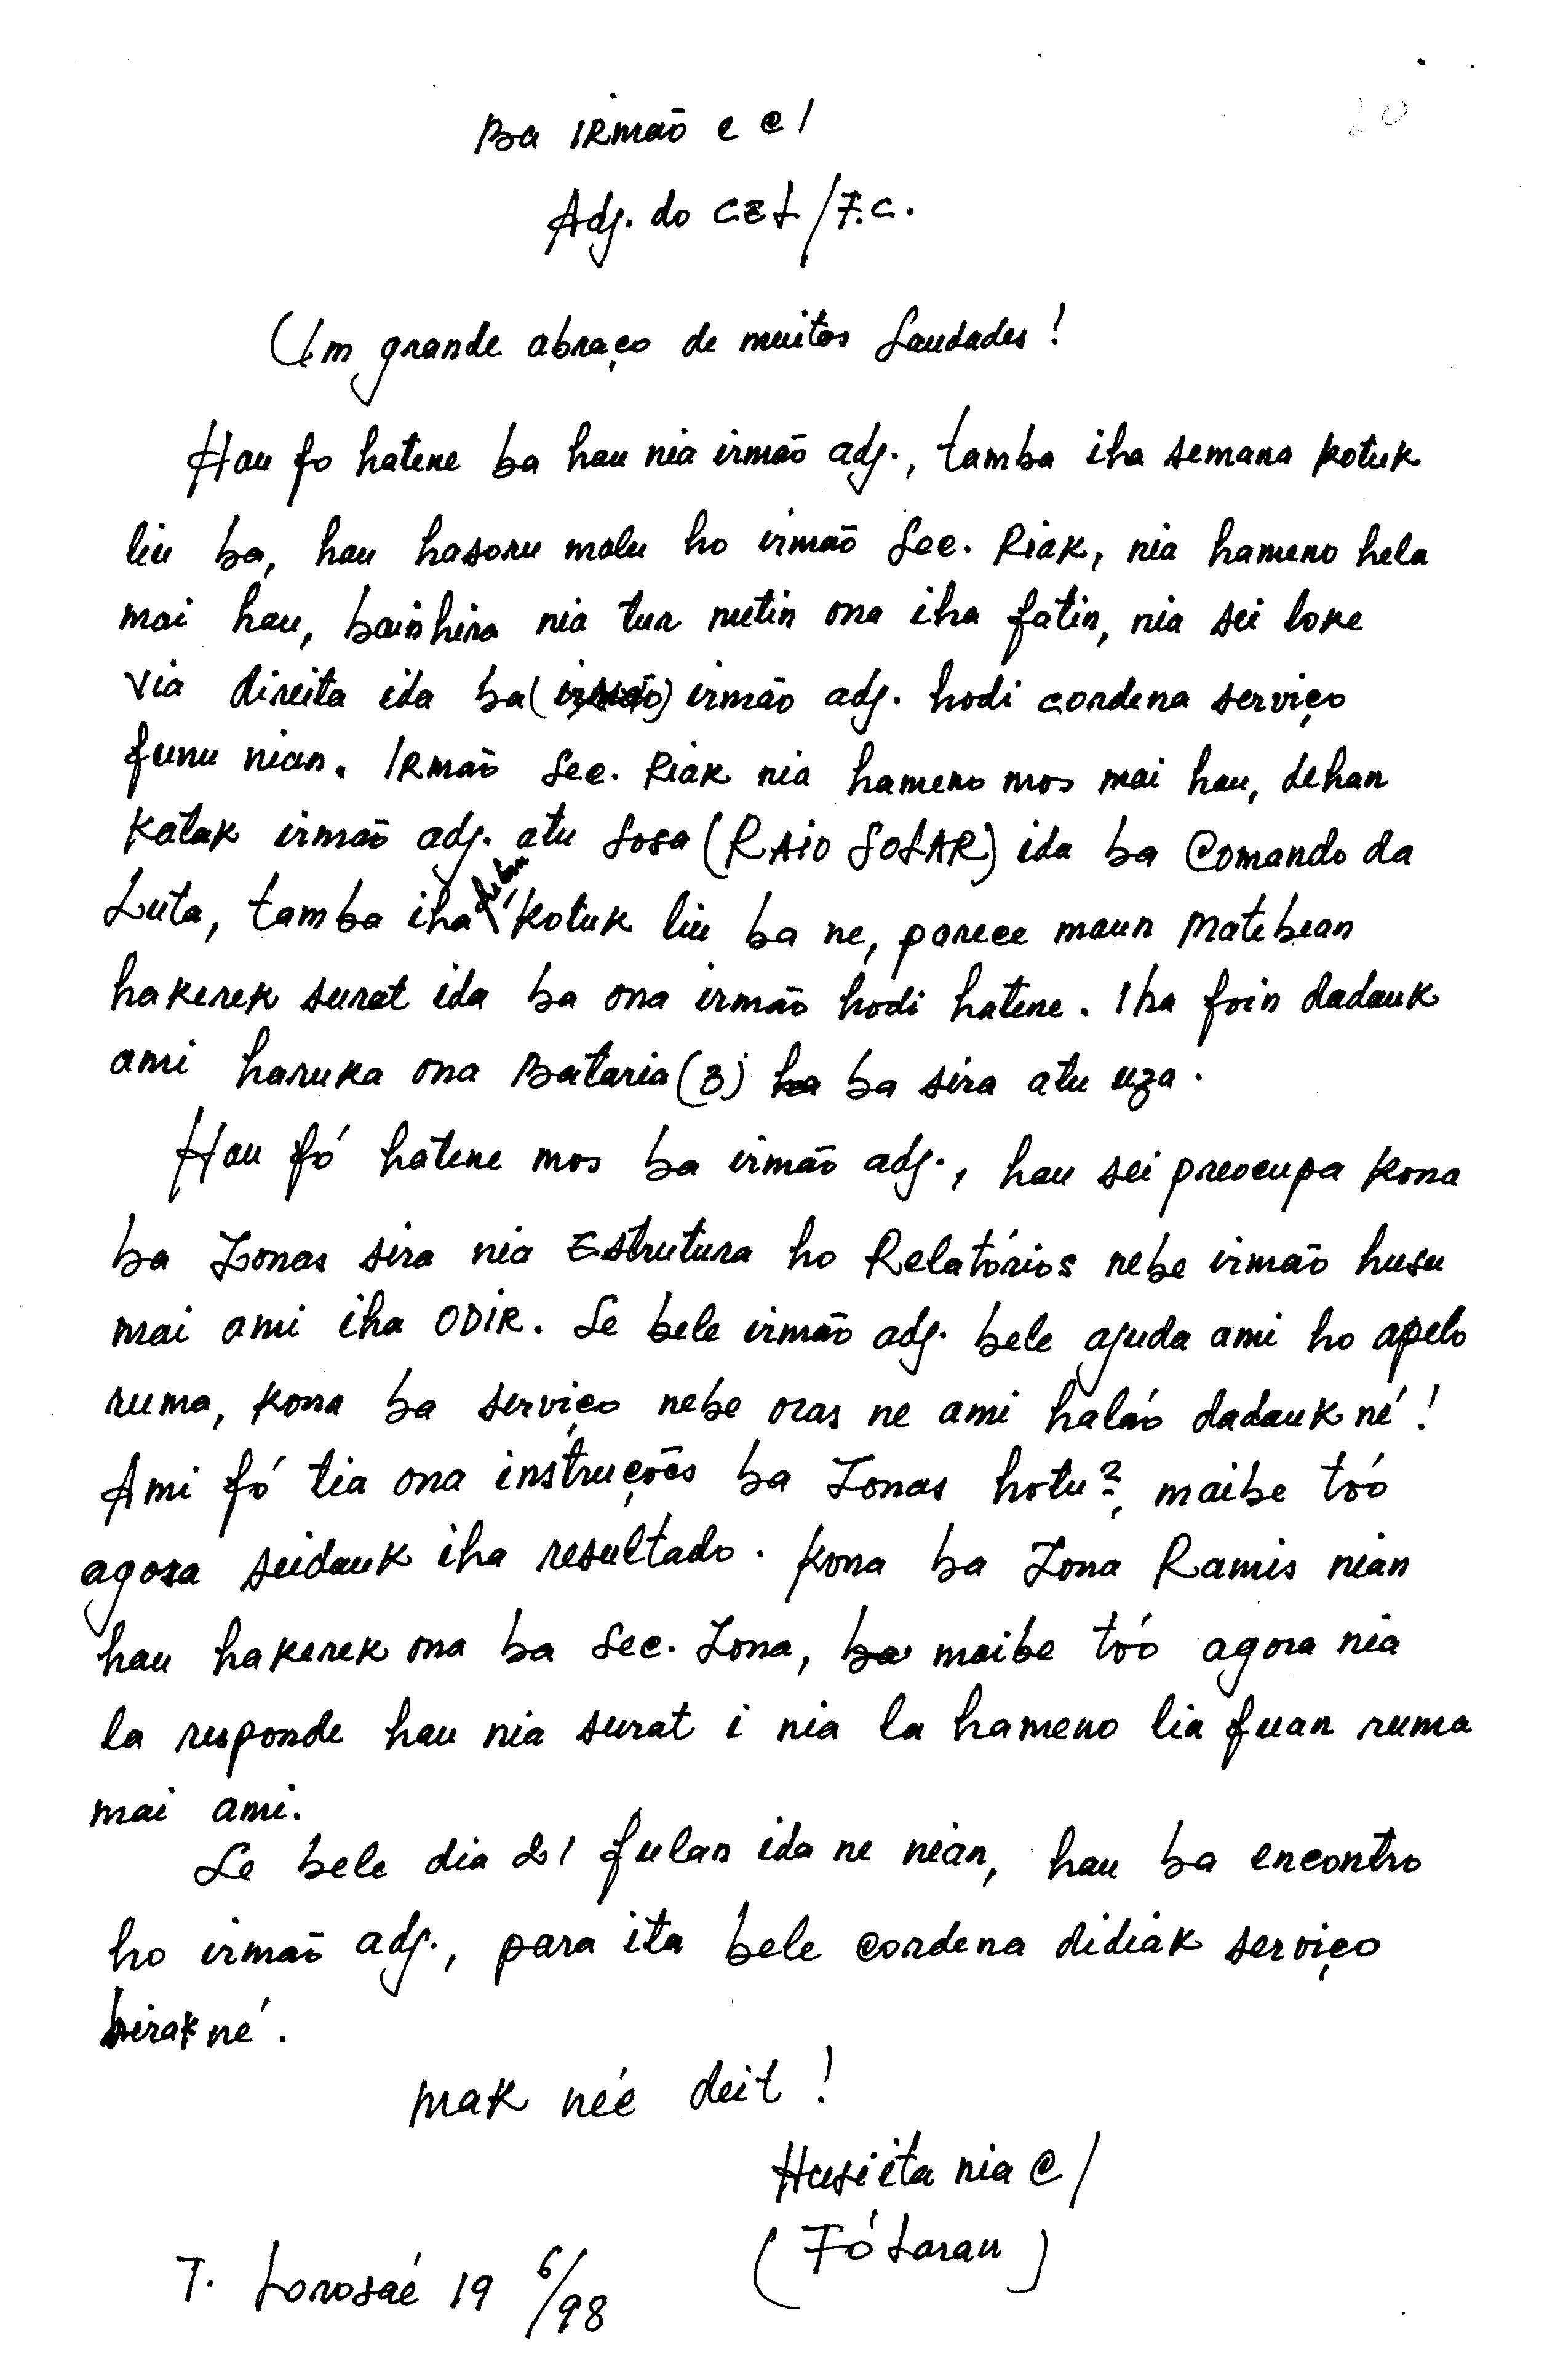 20
Ba IRmão e C/
Adj. do CEL/F.C.
Um grande abraço de muitos Saudades!
Hau fo hatene ba hau nia irmão adj., tamba iha semana kotuk
liu ba, hau hasoru malu ho irmão Sec. Riak, nia hameno hela
mai hau, bainhira nia tur metin ona iha fatin, nia sei loke
via direita ida ba (irmão) irmão adj. hodi cordena serviço
funu nian. IRmão Sec. Riak nia hameno mos mai hau, dehan
katak irmão adj. atu Sosa (RAiO SOLAR) ida ba Comando da
Luta, tamba iha kotuk liu ba ne, parece maun Matebean
hakerek surat ida ba ona irmão hodi hatene. Iha foin dadauk
ami haruka ona Bataria (3) ba sira atu uza.
Hau fó hatene mos ba irmão adj., hau sei preocupa kona
ba Zonas sira nia Estrutura ho Relatórios nebe irmão husu
mai ami iha ODIR. Se bele irmão adj. bele ajuda ami ho apelo
ruma, kona ba serviço nebe oras ne ami haláo dadauk né!
Ami fó tia ona instruções ba Zonas hotu?, maibe tóo
agora seidauk iha resultado. Kona ba Zona Ramis nian
hau hakerek ona ba Sec. Zona, ba maibe tóo agora nia
la responde hau nia surat i nia la hameno lia fuan ruma
mai ami.
Se bele dia 21 fulan ida ne nian, hau ba encontro
ho irmão adj., para ita bele cordena didiak serviço
hirak né.
Mak née deit!
Husi ita nia C/
(Fó Laran)
T. Lorosaé 19 6/98